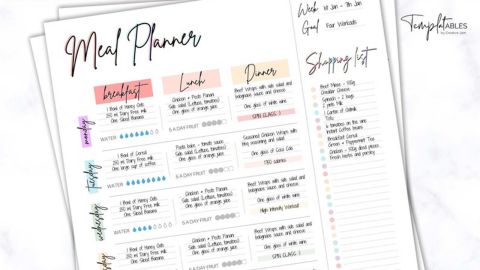 Meal Planner
Week 1st Jan - 7th Jan
Goal Four Workouts
TemplatABLES
by Creative Jam
Shopping list
breakfast
Lunch
Dinner
monday
1 Bowl of Honey Oats
250 ml Dairy Free milk
One Sliced Banana
Chicken + Pesto Panini
Side salad (Lettuce, tomatoes)
One glass of orange juice
Beef Wraps with side salad and
bolognaise sauce and cheese
One glass of white wine
SPIN CLASS
WATER
5 A DAY FRUIT
tuesday
1 Bowl of Cereal
250 ml Dairy Free milk
One large cup of coffee
Pasta bake - tomato sauce
Side salad (Lettuce, tomatoes)
One glass of orange juice
Seasoned Chicken Wraps with
BBQ seasoning and salad
One glass of Coca Cola
WATER
5 A DAY FRUIT
wednesday
1 Bowl of Honey Oats
250 ml Dairy Free milk
One Sliced Banana
Chicken + Pesto Panini
Side salad (Lettuce, tomatoes)
One glass of orange juice
Beef Wraps with side salad and
bolognaise sauce and cheese
One glass of white wine
High Intensity Workout
WATER
5 A DAY FRUIT
1 Bowl of Honey Oats
250 ml Dairy Free milk
One Sliced Banana
Chicken + Pesto Panini
Side salad (Lettuce, tomatoes)
One glass of orange juice
Beef Wraps with side salad and
bolognaise sauce and cheese
One glass of white wine
WATER
5 A DAY FRUIT
Cheddar Cheese
Spinach - 2 bags
2 pints Milk
1 Carton of Oatmilk
Tofu
6 tomatoes on the vine
Instant Coffee beans
Breakfast Cereal
Green + Peppermint Tea
Fresh herbs and parsley